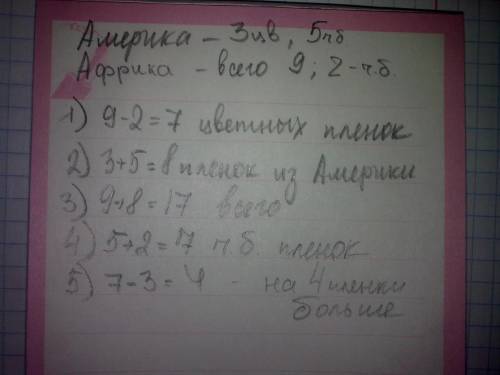 Америка – 3цв, 5чб
Африка – всего 9; 2-ч.б.
1) 9-2=7 цветных пленок
2) 3+5=8 пленок из Америки
3) 9+8=17 всего
4) 5+2=7 ч.б. пленок
5) 7-3=4 – на 4 пленки
больше